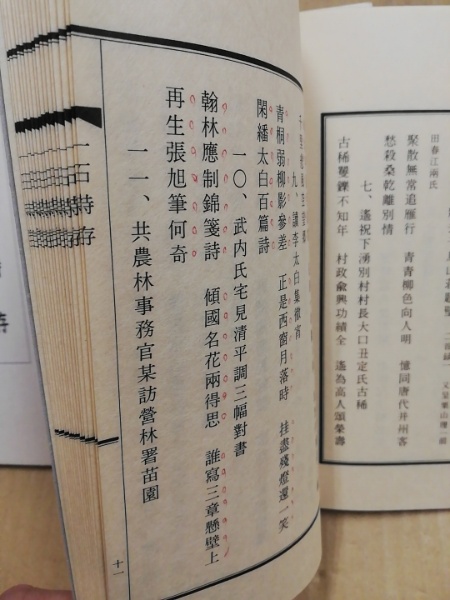 田春江兩氏
聚散無常追雁行 青青柳色向人明 憶同唐代并州客
愁殺桑乾離別情
七、遙祝下湧別村村長大口丑定氏古稀
古稀矍鑠不知年 村政僉興功績全 遙為高人頌
九、讀李太白集
青桐弱柳影參差 正是西窗月落時 挂盡殘燈還一笑
閑繙太白百篇詩
一〇、武内氏宅見清平調三幅對書
翰林應制錦箋詩 傾國名花兩得思 誰寫三章懸壁上
再生張旭筆何奇
一一、共農林事務官某訪營林署苗圃
十一
一石詩存